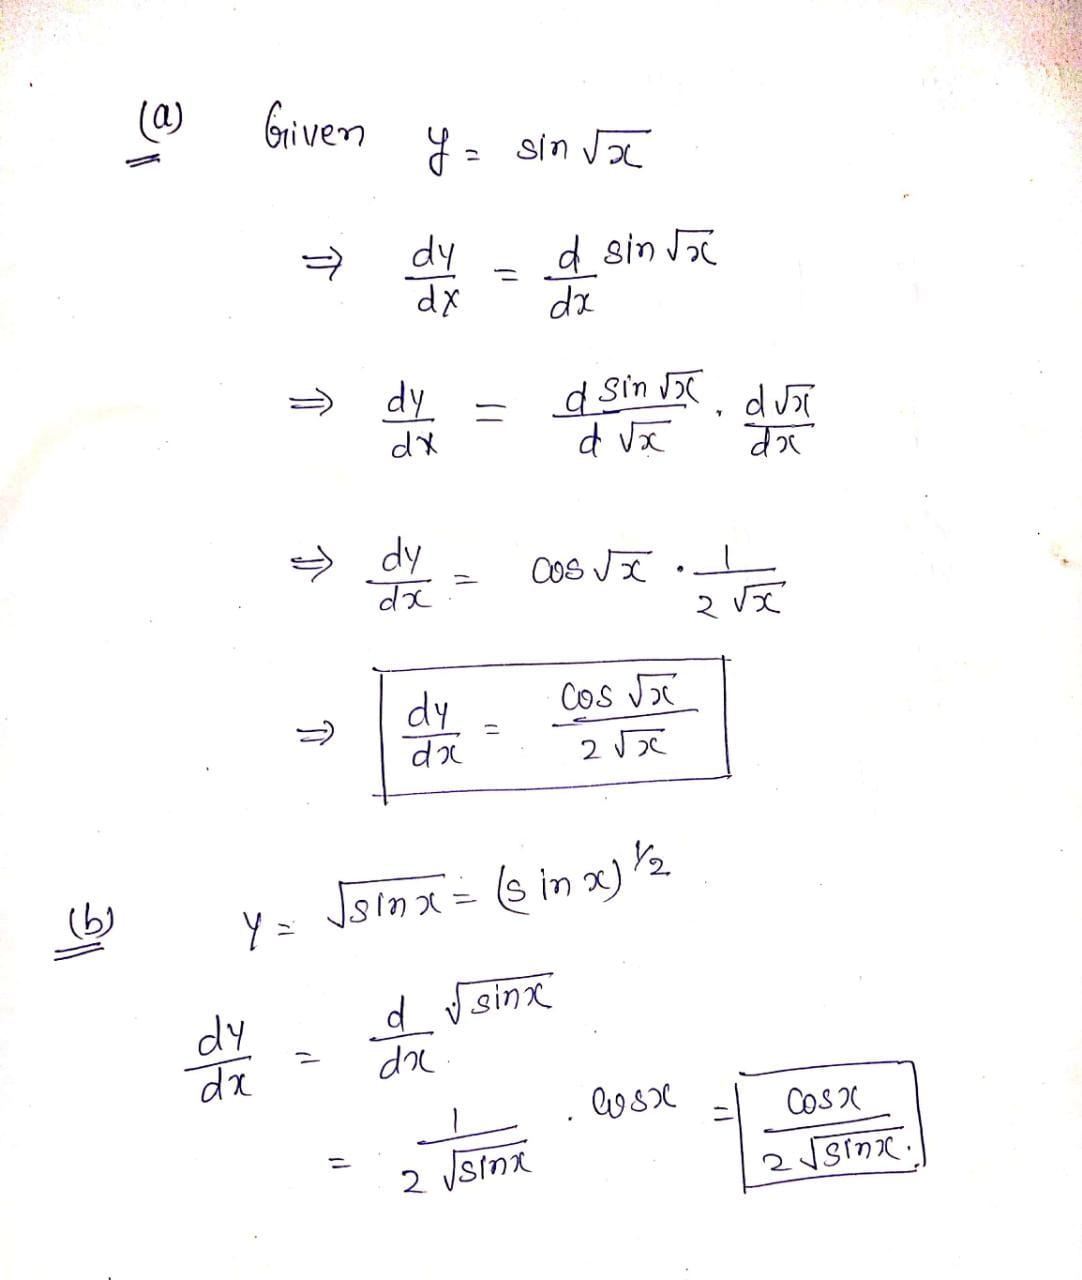 (a) Given y = sin √x
⇒ dy/dx = d/dx sin √x
⇒ dy/dx = d sin √x / d √x . d √x / dx
⇒ dy/dx = cos √x . 1 / 2 √x
⇒ dy/dx = cos √x / 2 √x
(b) y = √sin x = (sin x)^1/2
dy/dx = d/dx √sin x
= 1 / 2 √sin x . cos x = cos x / 2 √sin x.